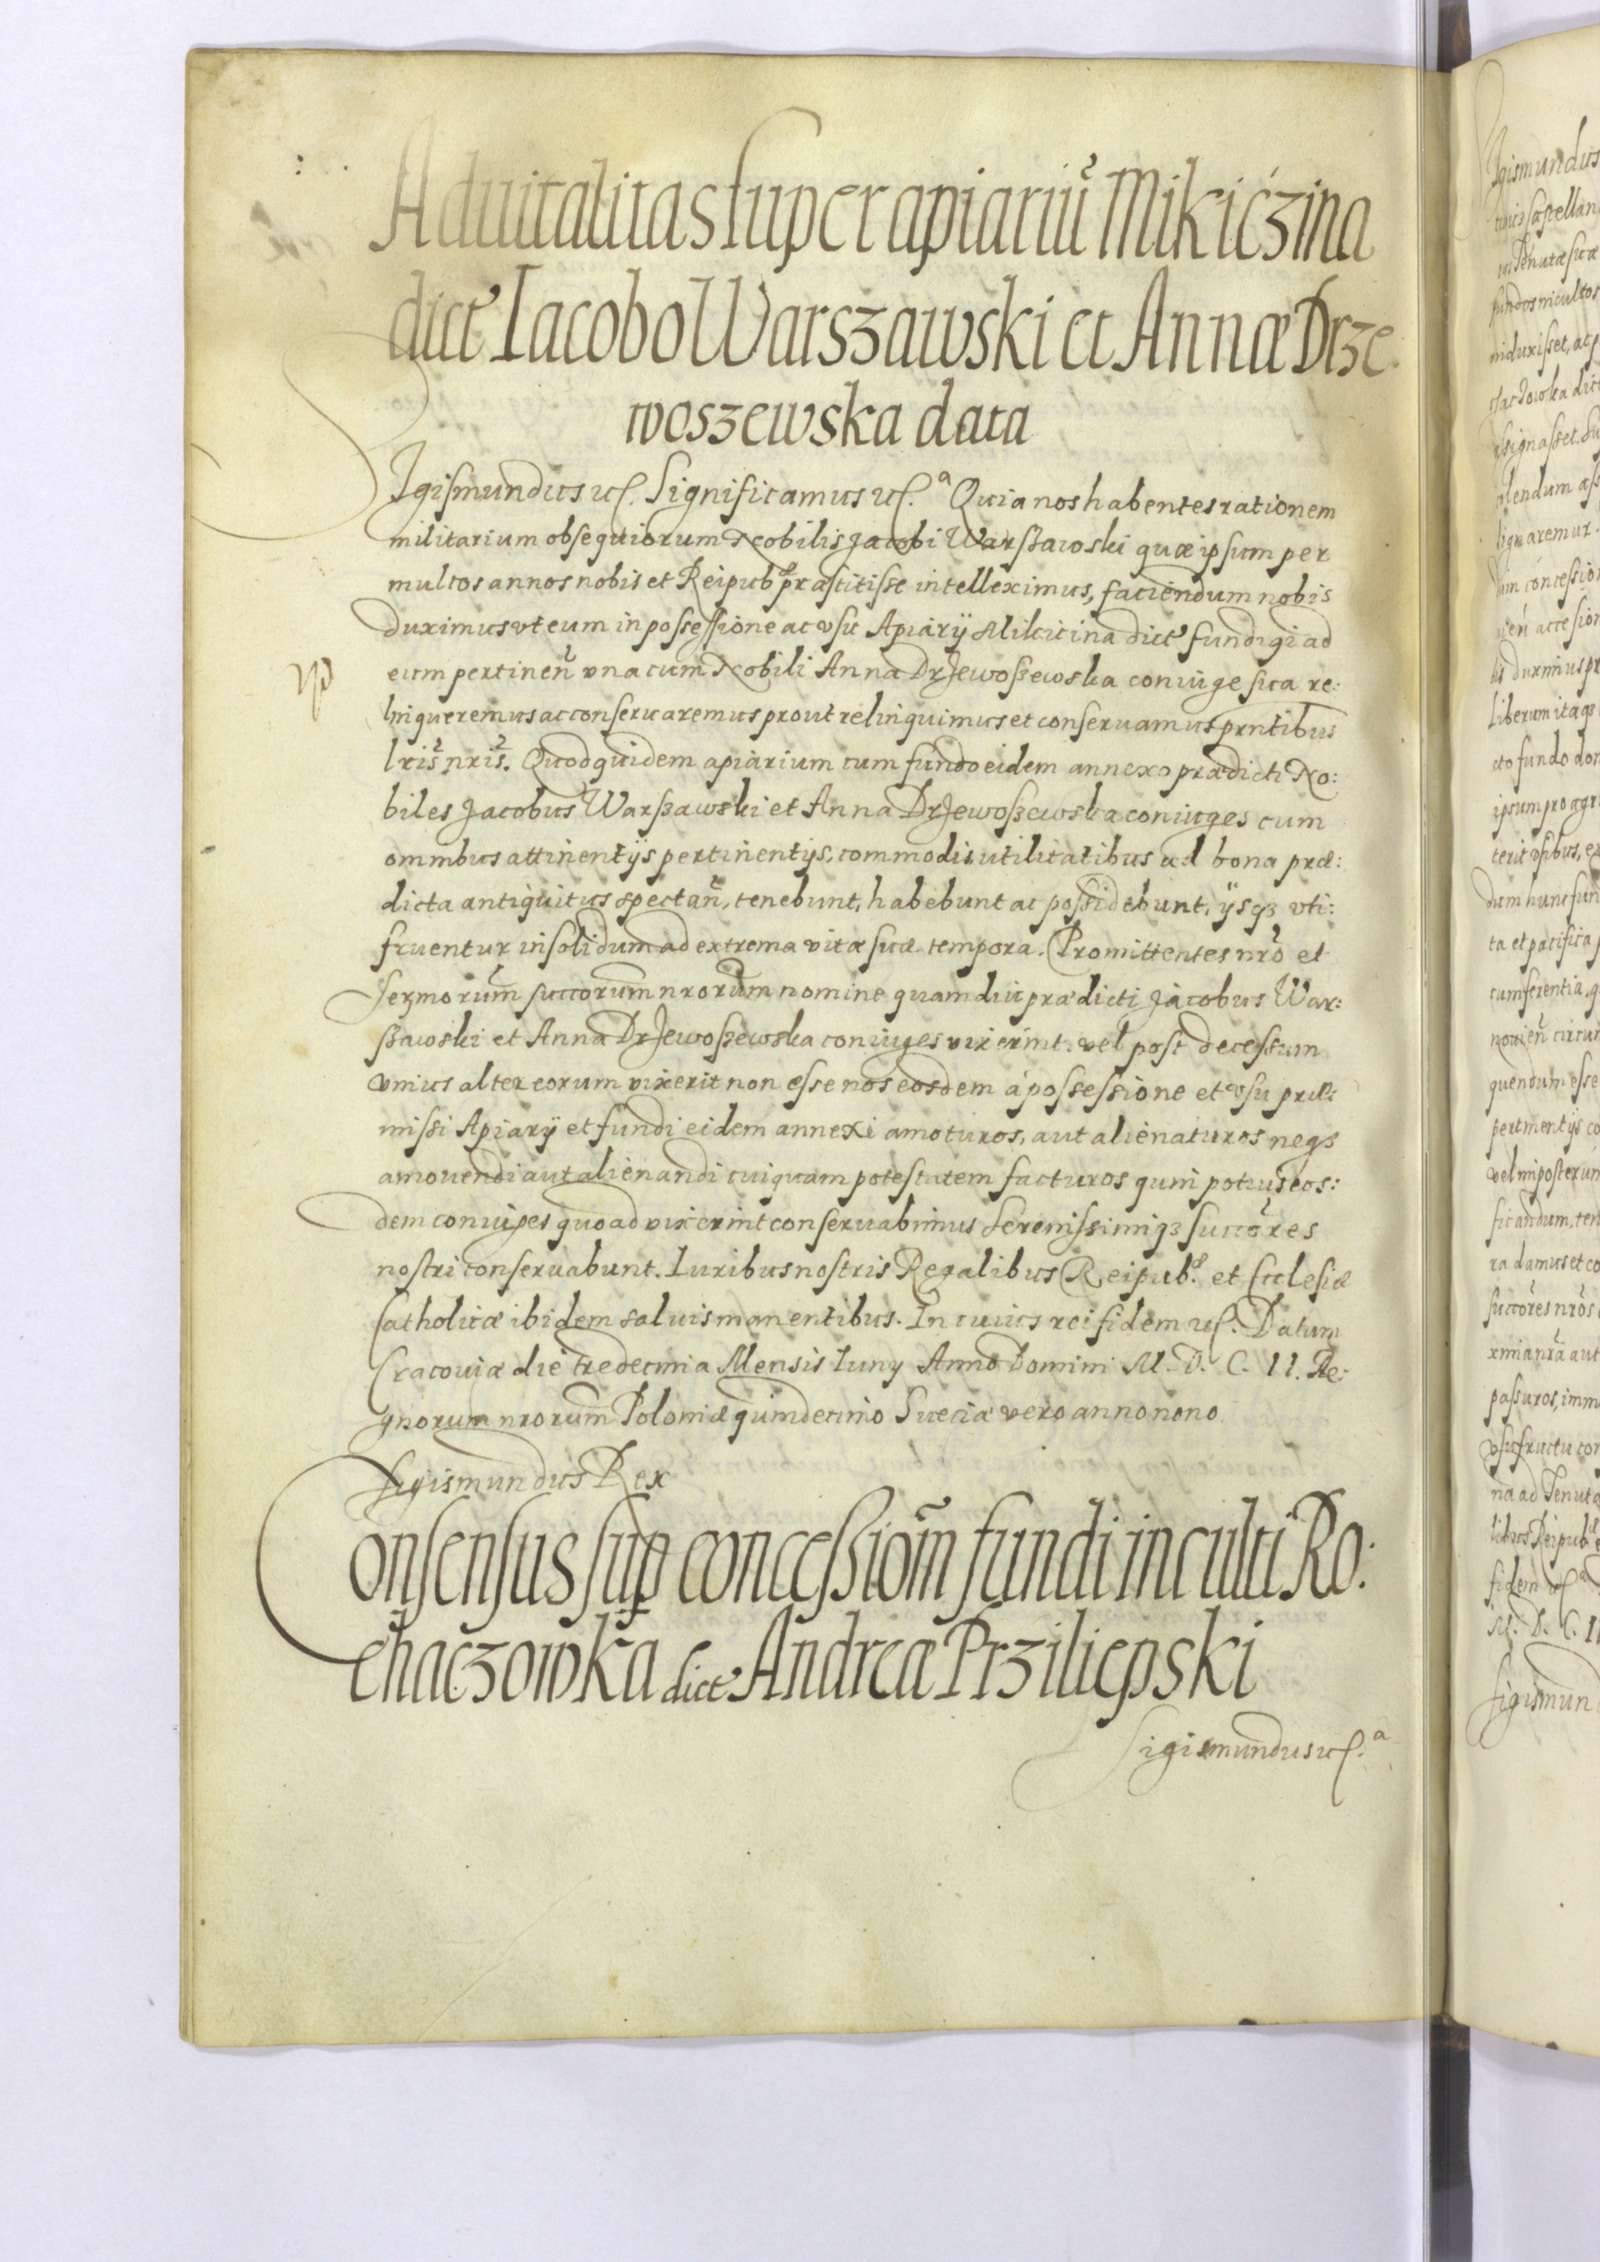 Aduitalitas super apiariũ Mikićzina
dict Iacobo Warszawski et Annæ Drze
woszewska data
Sigismundus etc. Significamus etc.ᵃ Quia nos habentes rationem
militarium obsequiorum Nobilis Jacobi Warßawski quæ ipsum per
multos annos nobis et Reipub præstitisse intelleximus, faciendum nobis
duximus vt eum in possessione ac vsu Apiarÿ Mikicina dict fundiqi ad
eum pertineñ vna cum Nobili Anna Drzewoßewska coniuge sua re:
linqueremus ac conseruaremus prout relinquimus et conseruamus prntibus
lris nris. Quod quidem apiarium cum fundo eidem annexo prædicti No:
biles Jacobus Warßawski et Anna Drzewoßewska coniuges cum
omnibus attinentÿs pertinentÿs, commodis utilitatibus ad bona præ:
dicta antiquitus spectañ, tenebunt, habebunt ac possidebunt, ÿsqz vti:
fruentur insolidum ad extrema vitæ suæ tempora. Promittentes nro et
Sermorum succorum nrorum nomine quamdiu prædicti Jacobus War:
ßawski et Anna Drzewoßewska coniuges vixerint. vel post decessum
vnius alter eorum vixerit non esse nos eosdem á possessione et vsu præ:
missi Apiarÿ et fundi eidem annexi amoturos, aut alienaturos neqz
amouendi aut alienandi cuiquam potestatem facturos quin potius eos:
dem coniuges quoad vixerint conseruabimus Serenissimiqz succores
nostri conseruabunt. Iuribus nostris Regalibus Reipub. et Ecclesiæ
Catholicæ ibidem saluis manentibus. In cuius rei fidem etc. Datum
Cracouiæ die tredecima Mensis Iuny Anno Domini M. D. C. II. Re:
gnorum nrorum Poloniæ quindecimo Sueciæ vero anno nono
Sigismundus Rex
Consensus sup concessiom fundi inculti Ro:
chaczowka dict Andreæ Prziliepski
Sigismundus etc.ᵃ